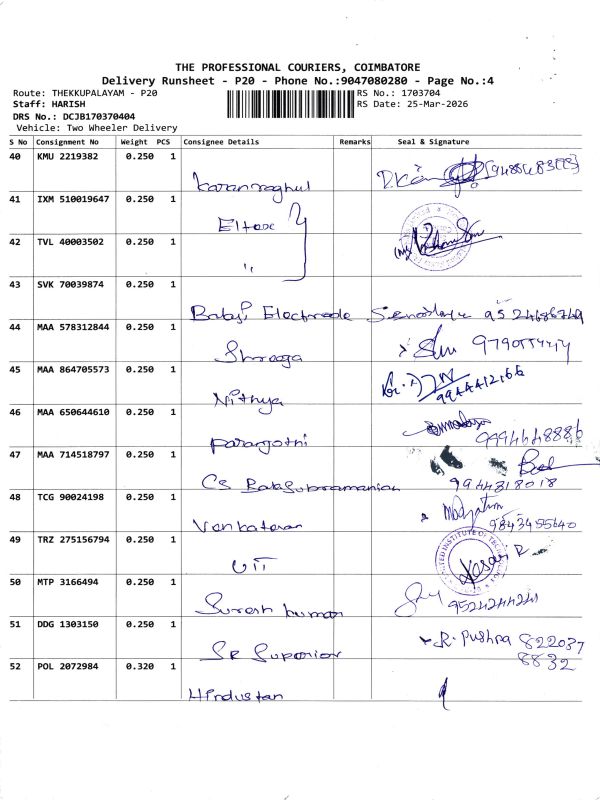 THE PROFESSIONAL COURIERS, COIMBATORE
Delivery Runsheet - P20 - Phone No.:9047080280 - Page No.:4
Route: THEKKUPALAYAM - P20
RS No.: 1703704
Staff: HARISH
RS Date: 25-Mar-2026
DRS No.: DCJB170370404
Vehicle: Two Wheeler Delivery
S No Consignment No Weight PCS Consignee Details Remarks Seal & Signature
40 KMU 2219382 0.250 1
Karanraghul
41 IXM 510019647 0.250 1
Eltex
42 TVL 40003502 0.250 1
"
43 SVK 70039874 0.250 1
Balaji Electrode
44 MAA 578312844 0.250 1
Shrooga
45 MAA 864705573 0.250 1
Nithya 9944412166
46 MAA 650644610 0.250 1
Parangothi 9994648886
47 MAA 714518797 0.250 1
CS Balasubramanian 9944318018
48 TCG 90024198 0.250 1
Venkatesan 9843455640
49 TRZ 275156794 0.250 1
UIT
50 MTP 3166494 0.250 1
Suresh kumar 9524244241
51 DDG 1303150 0.250 1
R. Pushpa 822037
SR Superior 8832
52 POL 2072984 0.320 1
Hindustan